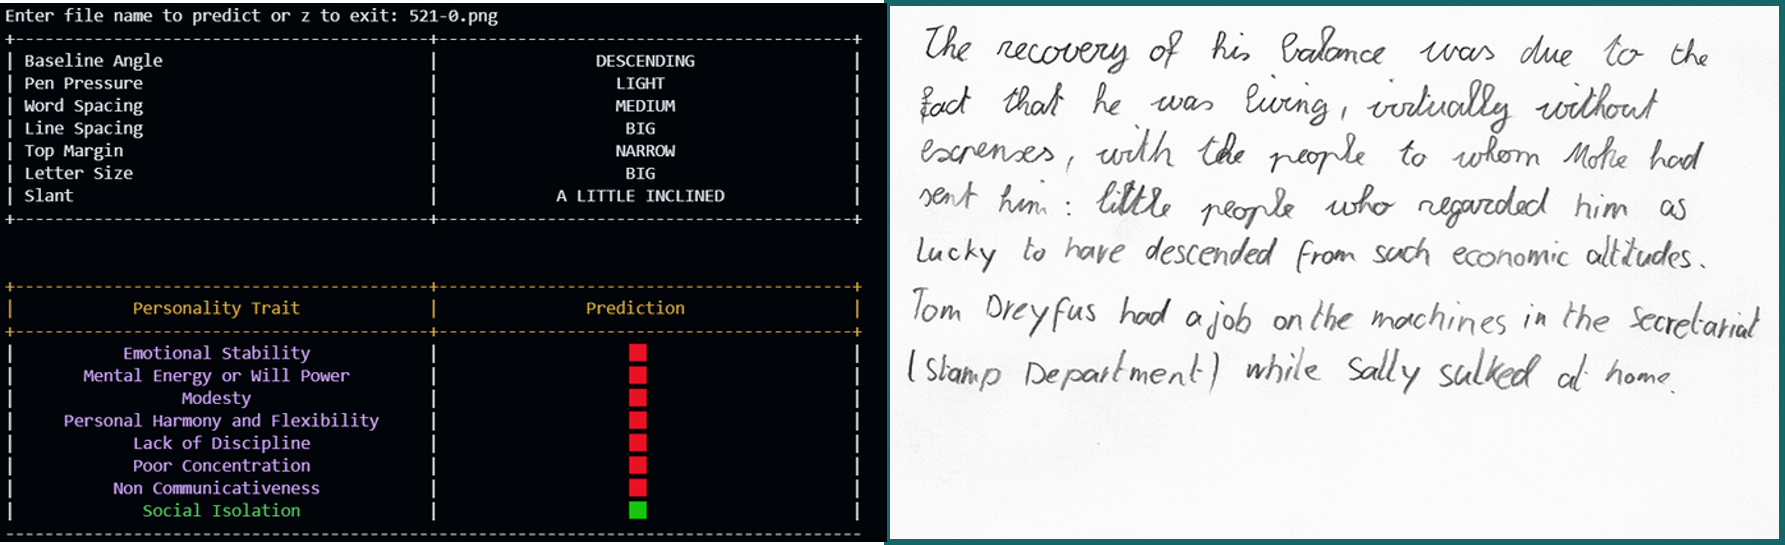 Enter file name to predict or z to exit: 521-0.png
Baseline Angle DESCENDING
Pen Pressure LIGHT
Word Spacing MEDIUM
Line Spacing BIG
Top Margin NARROW
Letter Size BIG
Slant A LITTLE INCLINED
Personality Trait Prediction
Emotional Stability
Mental Energy or Will Power
Modesty
Personal Harmony and Flexibility
Lack of Discipline
Poor Concentration
Non Communicativeness
Social Isolation
The recovery of his balance was due to the
fact that he was living, virtually without
escrenses, with the people to whom Moke had
sent him: little people who regarded him as
Lucky to have descended from such economic altitudes.
Tom Dreyfus had a job on the machines in the Secretariat
(Stamp Department) while Sally sulked at home.